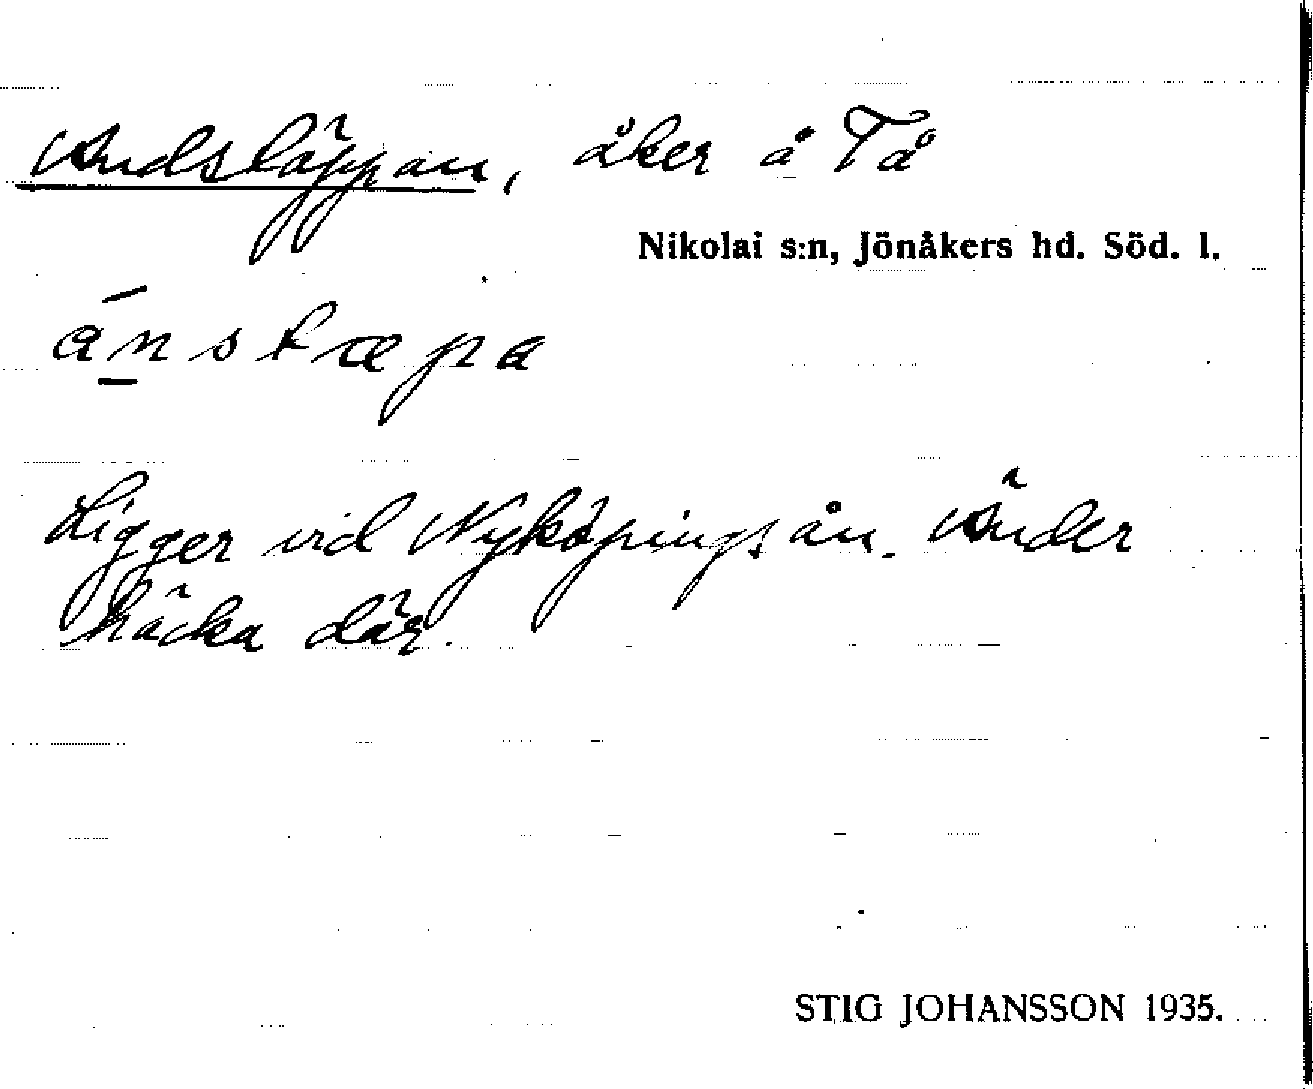 Andsläppan, åker å Tå
Nikolai s:n, Jönåkers hd. Söd. l.
ánslæpa
Ligger vid Nyköpingsån. Änder
häcka där.
STIG JOHANSSON 1935.